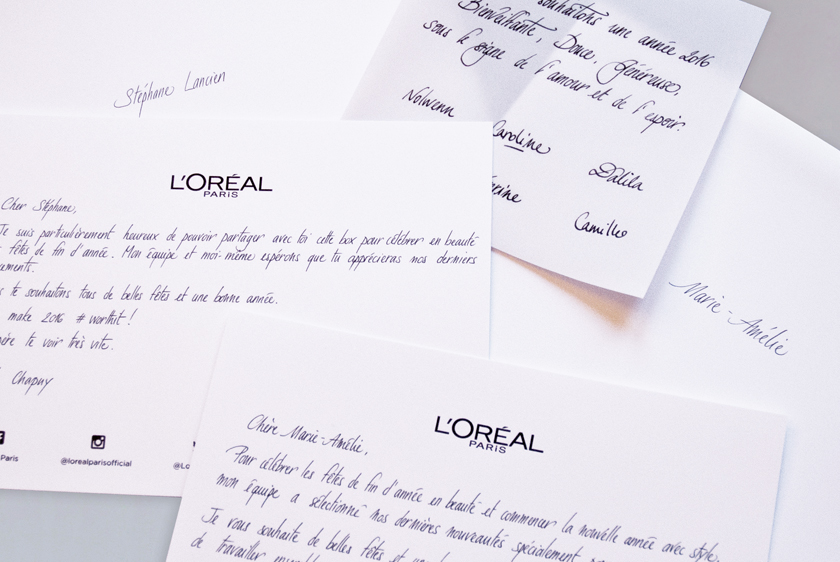 Stéphane Lancien
souhaitons une année 2016
Bienveillante, Douce, Généreuse,
sous le signe de l'amour et de l'espoir.
Nolwenn
Caroline
Dalila
Camille
Marie-Amélie
L'ORÉAL
PARIS
Cher Stéphane,
Je suis particulièrement heureux de pouvoir partager avec toi cette box pour célébrer en beauté
fêtes de fin d'année. Mon équipe et moi-même espérons que tu apprécieras nos derniers
te souhaitons tous de belles fêtes et une bonne année.
make 2016 #worthit!
te voir très vite.
Chapuy
Paris
@lorealparisofficial
L'ORÉAL
PARIS
Chère Marie-Amélie,
Pour célébrer les fêtes de fin d'année en beauté et commencer la nouvelle année avec style,
mon équipe a sélectionné nos dernières nouveautés spécialement
Je vous souhaite de belles fêtes et
de travailler